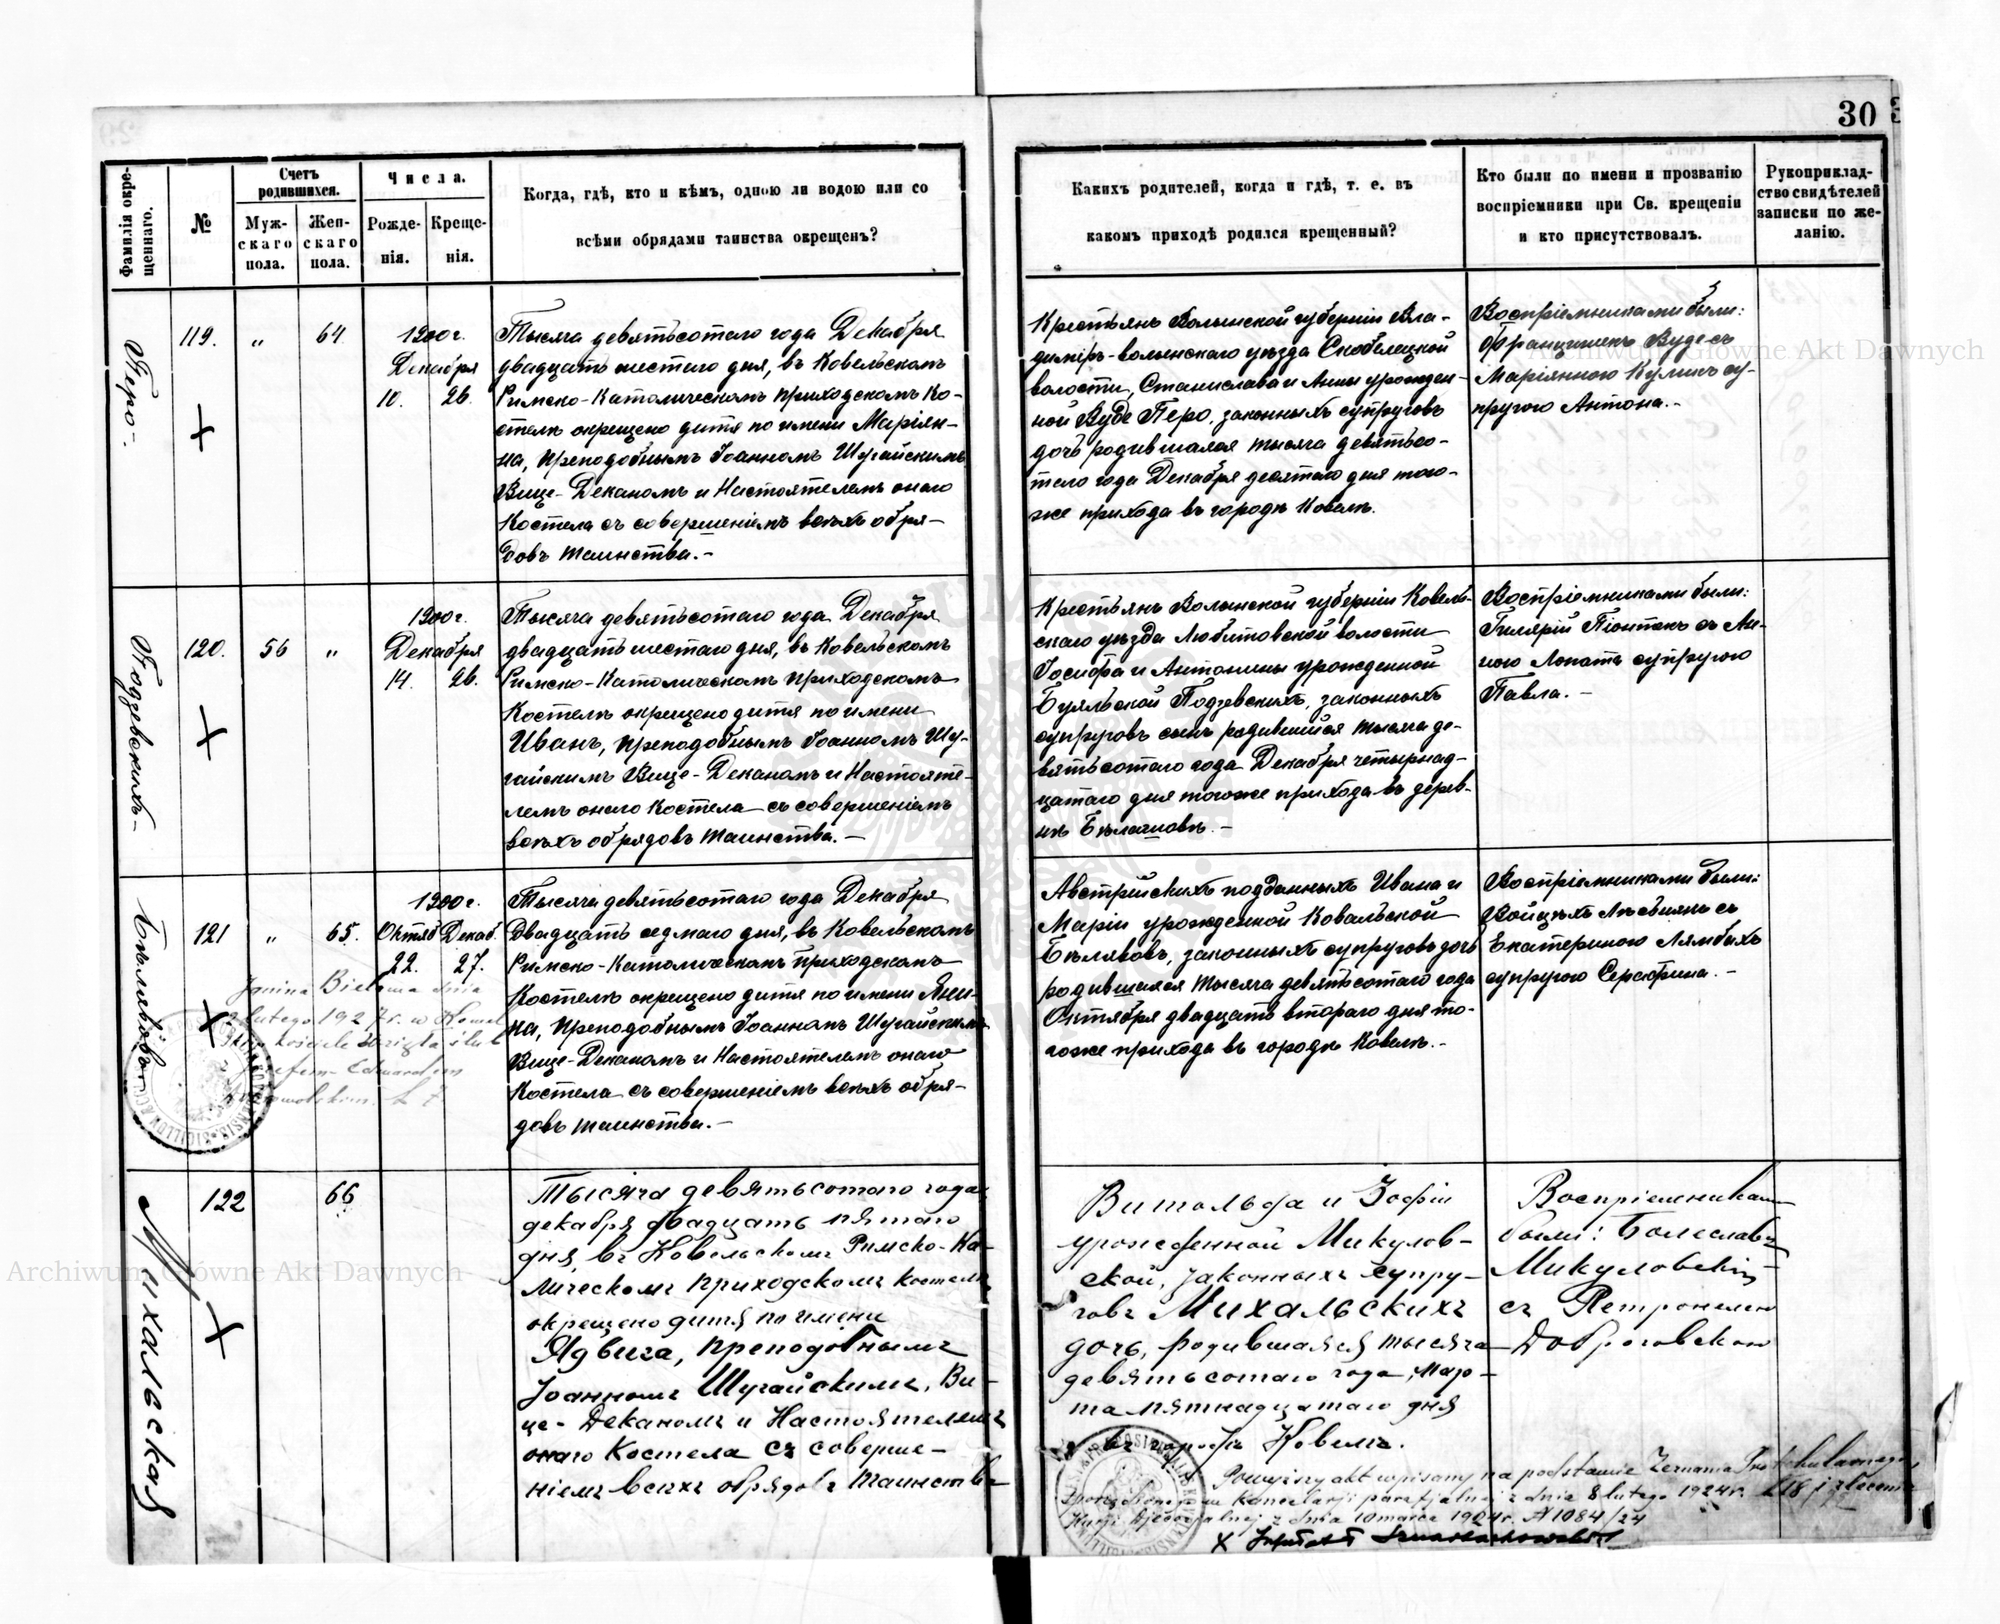 30
Фамилія окре-
щеннаго.
№
Счетъ
родившихся.
Муж-
скаго
пола.
Жен-
скаго
пола.
Числа.
Рожде-
нія.
Креще-
нія.
Когда, гдѣ, кто и кѣмъ, одною ли водою или со
всѣми обрядами таинства окрещенъ?
Какихъ родителей, когда и гдѣ, т. е. въ
какомъ приходѣ родился крещенный?
Кто были по имени и прозванію
воспріемники при Св. крещеніи
и кто присутствовалъ.
Рукоприклад-
ство свидѣтелей
записки по же-
ланію.
Перо.-
119.
„
64
1900г.
Декабря
10. 26.
Тысяча девятьсотаго года Декабря
двадцать шестаго дня, въ Ковельскомъ
Римско-Католическомъ приходскомъ Ко-
стелѣ окрещено дитя по имени Маріян-
на, преподобнымъ Іоанномъ Шугайскимъ
Вице-Деканомъ и Настоятелемъ онаго
Костела съ совершеніемъ всѣхъ обря-
довъ таинства.-
Крестьянъ Волынской губерніи Вла-
димиръ-волынскаго уѣзда Скобелецкой
волости, Станислава и Анны урожден-
ной Вуде Перо, законныхъ супруговъ
дочь родившаяся тысяча девятьсо-
таго года Декабря десятаго дня того-
же прихода въ городѣ Ковелѣ.
Воспріемниками были:
Францишекъ Вуде съ
Маріянною Кулишъ су-
пругою Антона.-
Подзевскихъ-
120.
56
„
1900г.
Декабря
14. 26.
Тысяча девятьсотаго года Декабря
двадцать шестаго дня, въ Ковельскомъ
Римско-Католическомъ приходскомъ
Костелѣ окрещено дитя по имени
Иванъ, преподобнымъ Іоанномъ Шу-
гайскимъ Вице-Деканомъ и Настояте-
лемъ онаго Костела съ совершеніемъ
всѣхъ обрядовъ таинства.-
Крестьянъ Волынской губерніи Ковель-
скаго уѣзда Любитовской волости
Іосифа и Антонины урожденной
Буяльской Подзевскихъ, законныхъ
супруговъ сынъ родившійся тысяча де-
вятьсотаго года Декабря четырнад-
цатаго дня тогоже прихода въ дерев-
нѣ Бѣлашовѣ.-
Воспріемниками были:
Гилярій Піонтекъ съ Ан-
ною Лопатъ супругою
Павла.-
Бѣляковъ
121
„
65.
1900г.
Октяб Декаб.
22. 27.
Тысяча девятьсотаго года Декабря
Двадцать седмаго дня, въ Ковельскомъ
Римско-Католическомъ приходскомъ
Костелѣ окрещено дитя по имени Яни-
на, преподобнымъ Іоанномъ Шугайскимъ
Вице-Деканомъ и Настоятелемъ онаго
Костела съ совершеніемъ всѣхъ обря-
довъ таинства.-
Австрійскихъ подданныхъ Ивана и
Маріи урожденной Ковальской
Бѣляковъ, законныхъ супруговъ дочь
родившаяся тысяча девятьсотаго года
Октября двадцать втораго дня то-
гоже прихода въ городѣ Ковелѣ.-
Воспріемниками были:
Войцѣхъ Лѣсьвянъ съ
Екатериною Лямбахъ
супругою Серафина.-
Janina Bielawa dnia
lutego 1927r. w Kowel
Михальская
122
66
Тысяча девятьсотаго года
декабря двадцать пятаго
дня, въ Ковельскомъ Римско-Ка-
лическомъ приходскомъ костелѣ
окрещено дитя по имени
Ядвига, преподобнымъ
Іоанномъ Шугайскимъ, Ви-
це-Деканомъ и Настоятелемъ
онаго Костела съ соверше-
ніемъ всѣхъ обрядовъ таинства
Витольда и Зофіи
урожденной Микулов-
ской, законныхъ супру-
говъ Михальскихъ
дочь, родившаяся тысяча
девятьсотаго года, Мар-
та пятнадцатаго дня
въ городѣ Ковелѣ.
Воспріемниками
были: Болеславъ
Микуловскій
съ Петронелею
Доброговскою
Powyższy akt wpisany na podstawie
kancelarji parafjalnej z dnia 8 lutego 1924r. L 18 i zlecenia
Kurji Djecezjalnej z dnia 10 marca 1924r. N 1084/24
Archiwum Główne Akt Dawnych
Archiwum Główne Akt Dawnych